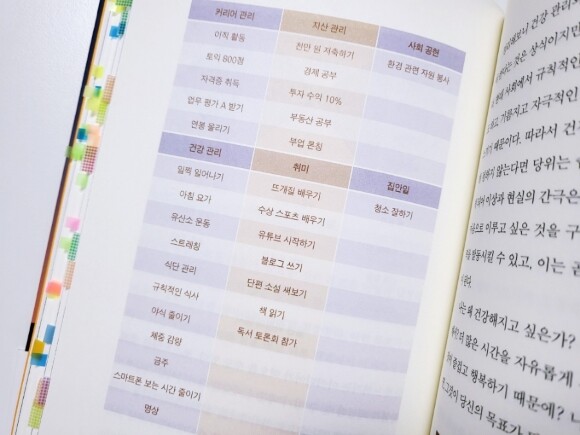 커리어 관리 자산 관리 사회 공헌
이직 활동 천만 원 저축하기 환경 관련 자원 봉사
토익 800점 경제 공부
자격증 취득 투자 수익 10%
업무 평가 A 받기 부동산 공부
연봉 올리기 부업 론칭
건강 관리 취미 집안일
일찍 일어나기 뜨개질 배우기 청소 잘하기
아침 요가 수상 스포츠 배우기
유산소 운동 유튜브 시작하기
스트레칭 블로그 쓰기
식단 관리 단편 소설 써보기
규칙적인 식사 책 읽기
야식 줄이기 독서 토론회 참가
체중 감량
금주
스마트폰 보는 시간 줄이기
명상
건강 관리
것은 상식이지만
사회에서 규칙적인
기름지고 자극적인
때문이다. 따라서 건
않는다면 당위는
이상과 현실의 간극은
으로 이루고 싶은 것을 구
발동시킬 수 있고, 이는
나는 왜 건강해지고 싶은가?
많은 시간을 자유롭게
즐겁고 행복하기 때문에?
그것이 당신의 목표가